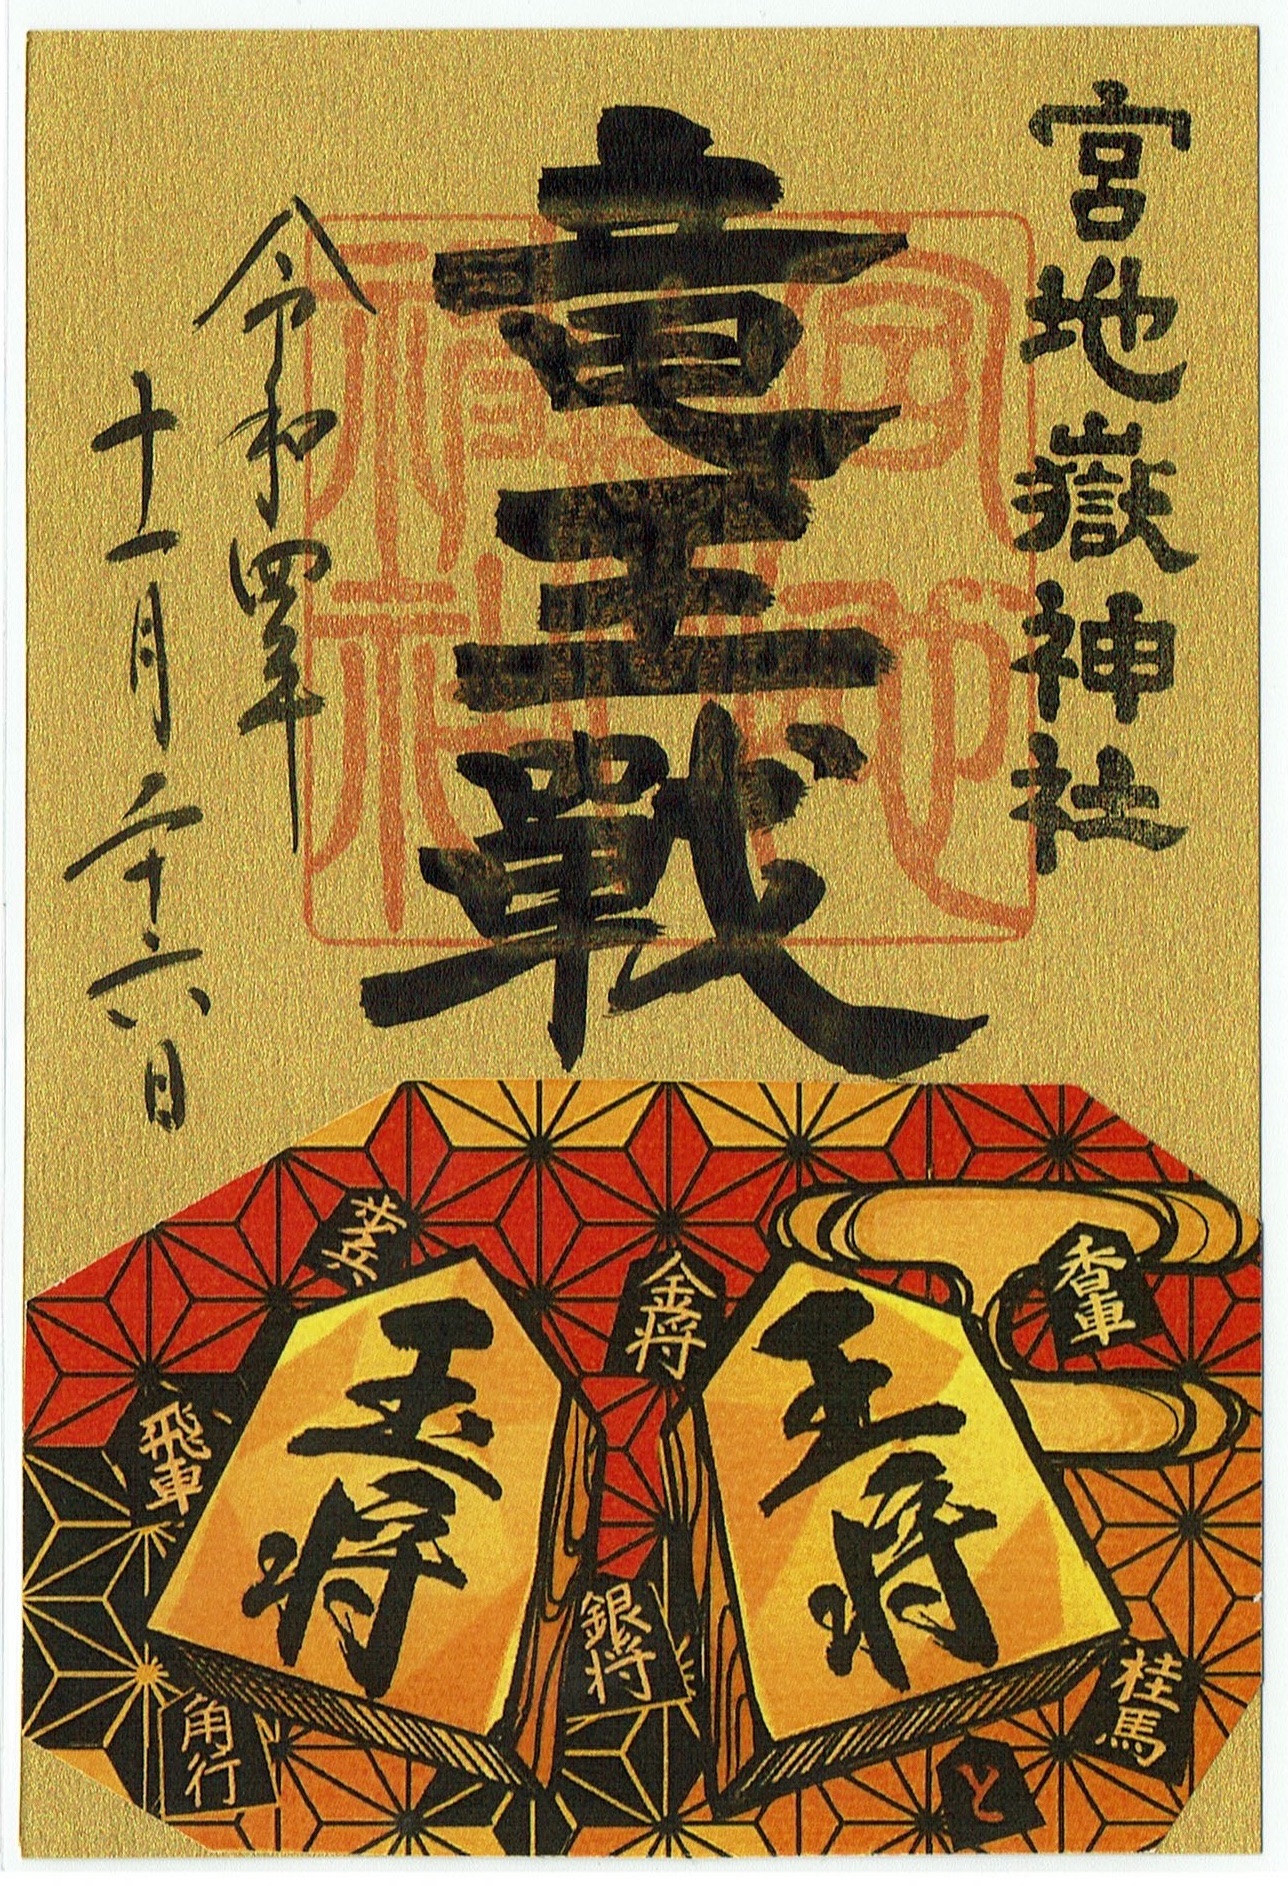 宮地嶽神社
竜王戰
令和四年
十一月二十六日
歩兵
金将
香車
玉将
王将
飛車
銀将
桂馬
角行
と
宮地
神社